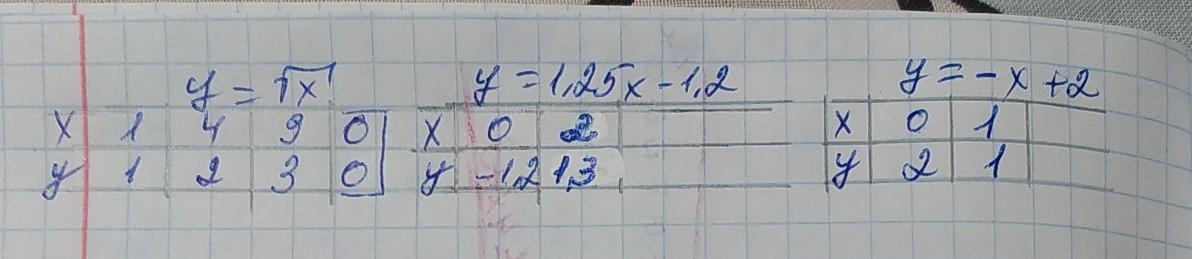 y = √x y = 1,25x - 1,2 y = -x + 2
x 1 4 9 0 x 0 2 x 0 1
y 1 2 3 0 y -1,2 1,3 y 2 1